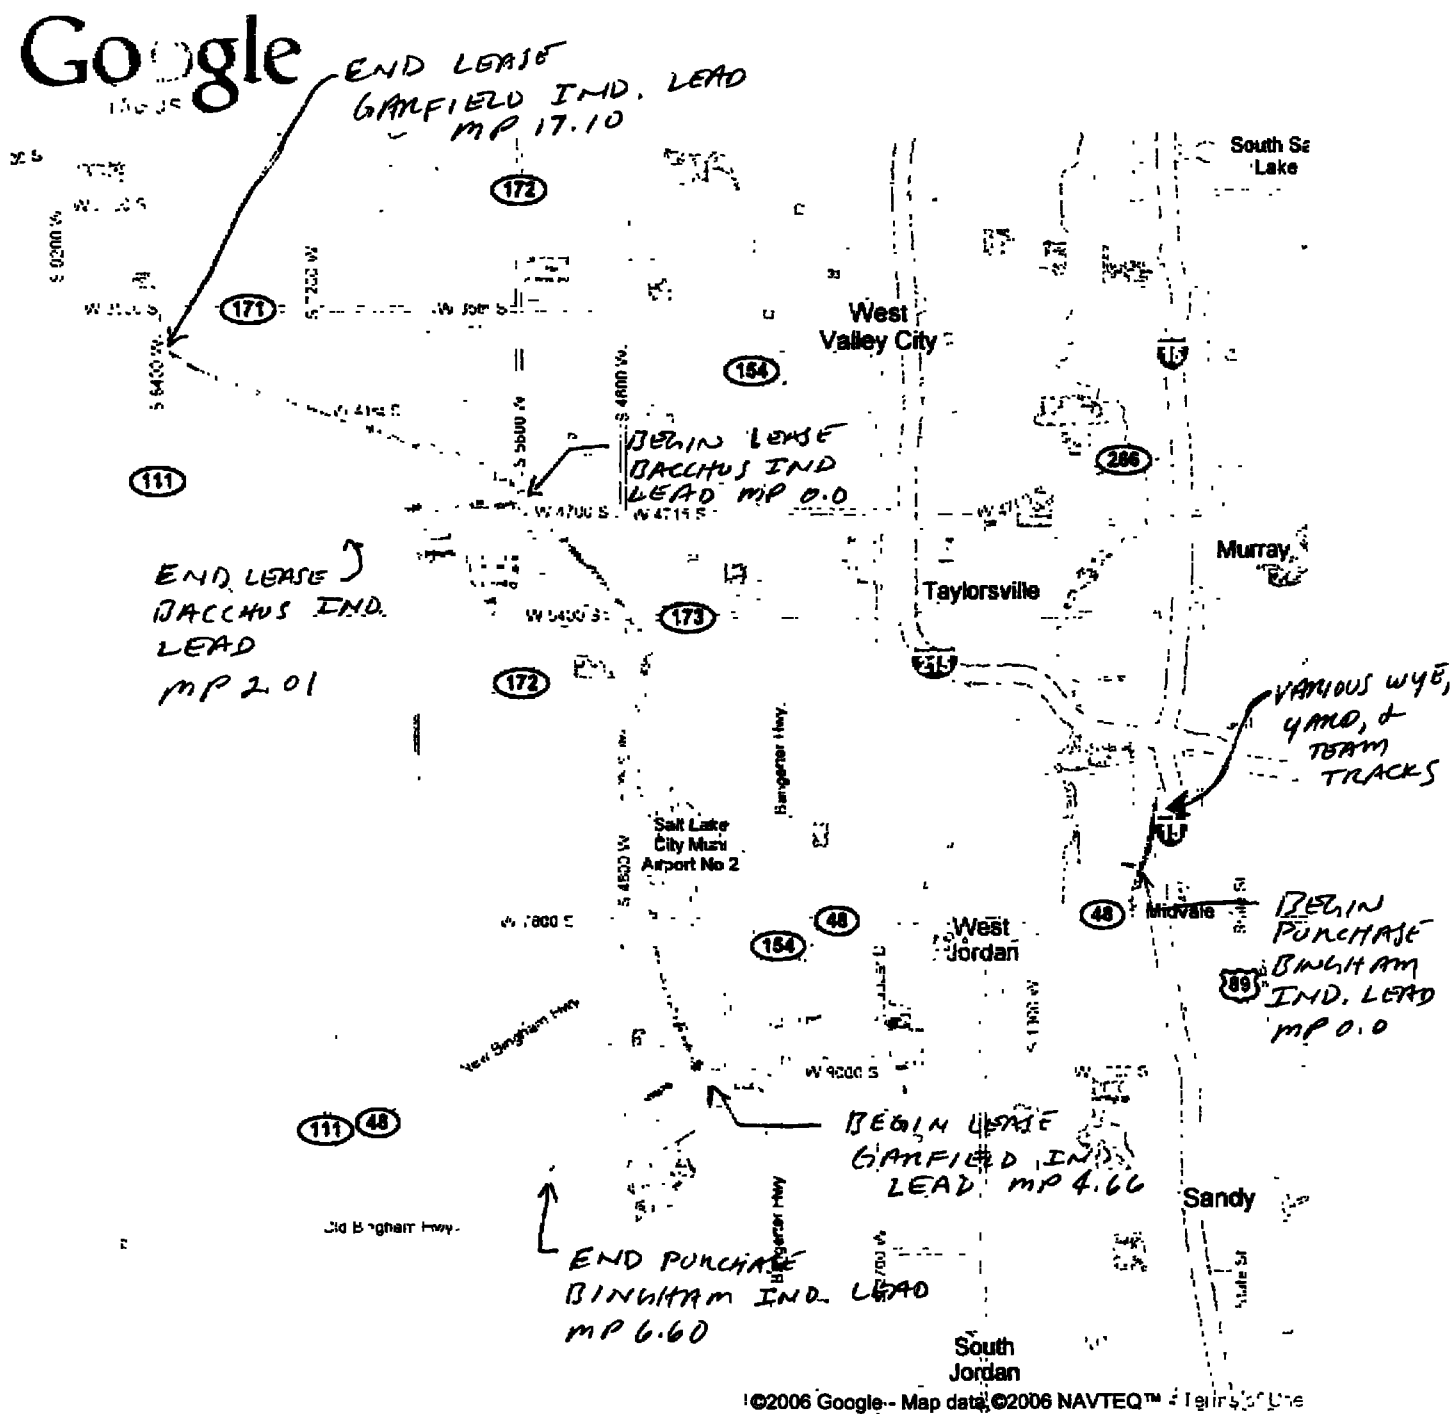 Google
END LEASE
GARFIELD IND. LEAD
MP 17.10
South Sa
Lake
172
S 7200 W
171
West
Valley City
15
154
S 8400 W
S 4800 W
S 5600 W
BEGIN LEASE
BACCHUS IND
LEAD MP 0.0
266
111
W 4700 S
W 4715 S
Murray
END LEASE
BACCHUS IND.
LEAD
MP 2.01
Taylorsville
W 5400 S
173
215
172
VARIOUS WYE,
YARD, &
TEAM
TRACKS
Bangerter Hwy.
Salt Lake
City Muni
Airport No 2
15
S 4800 W
W 7800 S
48
154
West
Jordan
48
Midvale
State St
BEGIN
PURCHASE
BINGHAM
IND. LEAD
MP 0.0
89
S 1300 W
New Bingham Hwy
W 9000 S
111
48
BEGIN LEASE
GARFIELD IND
LEAD MP 4.66
Bangerter Hwy
Sandy
Old Bingham Hwy.
END PURCHASE
BINGHAM IND. LEAD
MP 6.60
Bangerter Hwy
State St
South
Jordan
©2006 Google - Map data ©2006 NAVTEQ™ - Terms of Use